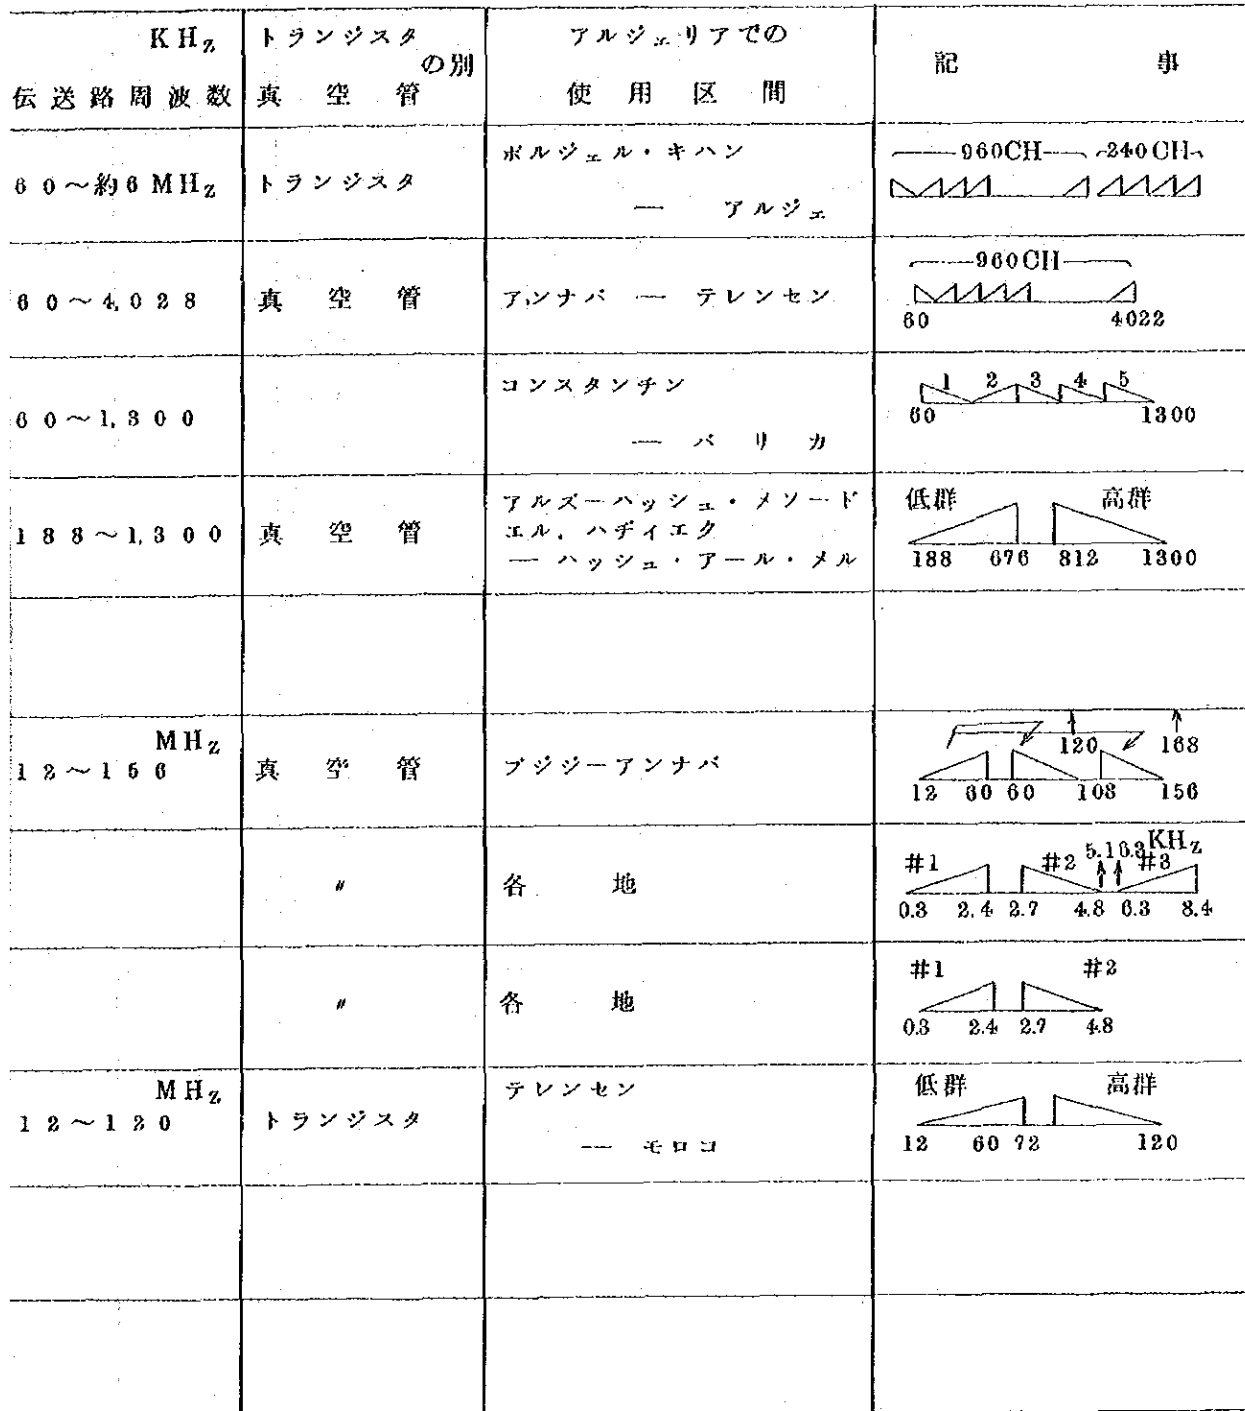 KHz
伝送路周波数
トランジスタ
の別
真空管
アルジェリアでの
使用区間
記事
60~約6MHz
トランジスタ
ボルジェル・キハン
— アルジェ
960CH 240CH
60~4,028
真空管
アンナバ — テレンセン
960CH
60 4022
60~1,300
コンスタンチン
— バリカ
1 2 3 4 5
60 1300
188~1,300
真空管
アルズーハッシュ・メソード
エル.ハディイエク
— ハッシュ・アール・メル
低群 高群
188 676 812 1300
MHz
12~156
真空管
ブジジーアンナバ
120 168
12 60 60 108 156
〃
各地
#1 #2 5.1 6.3 KHz #3
0.3 2.4 2.7 4.8 6.3 8.4
〃
各地
#1 #2
0.3 2.4 2.7 4.8
MHz
12~120
トランジスタ
テレンセン
— モロコ
低群 高群
12 60 72 120